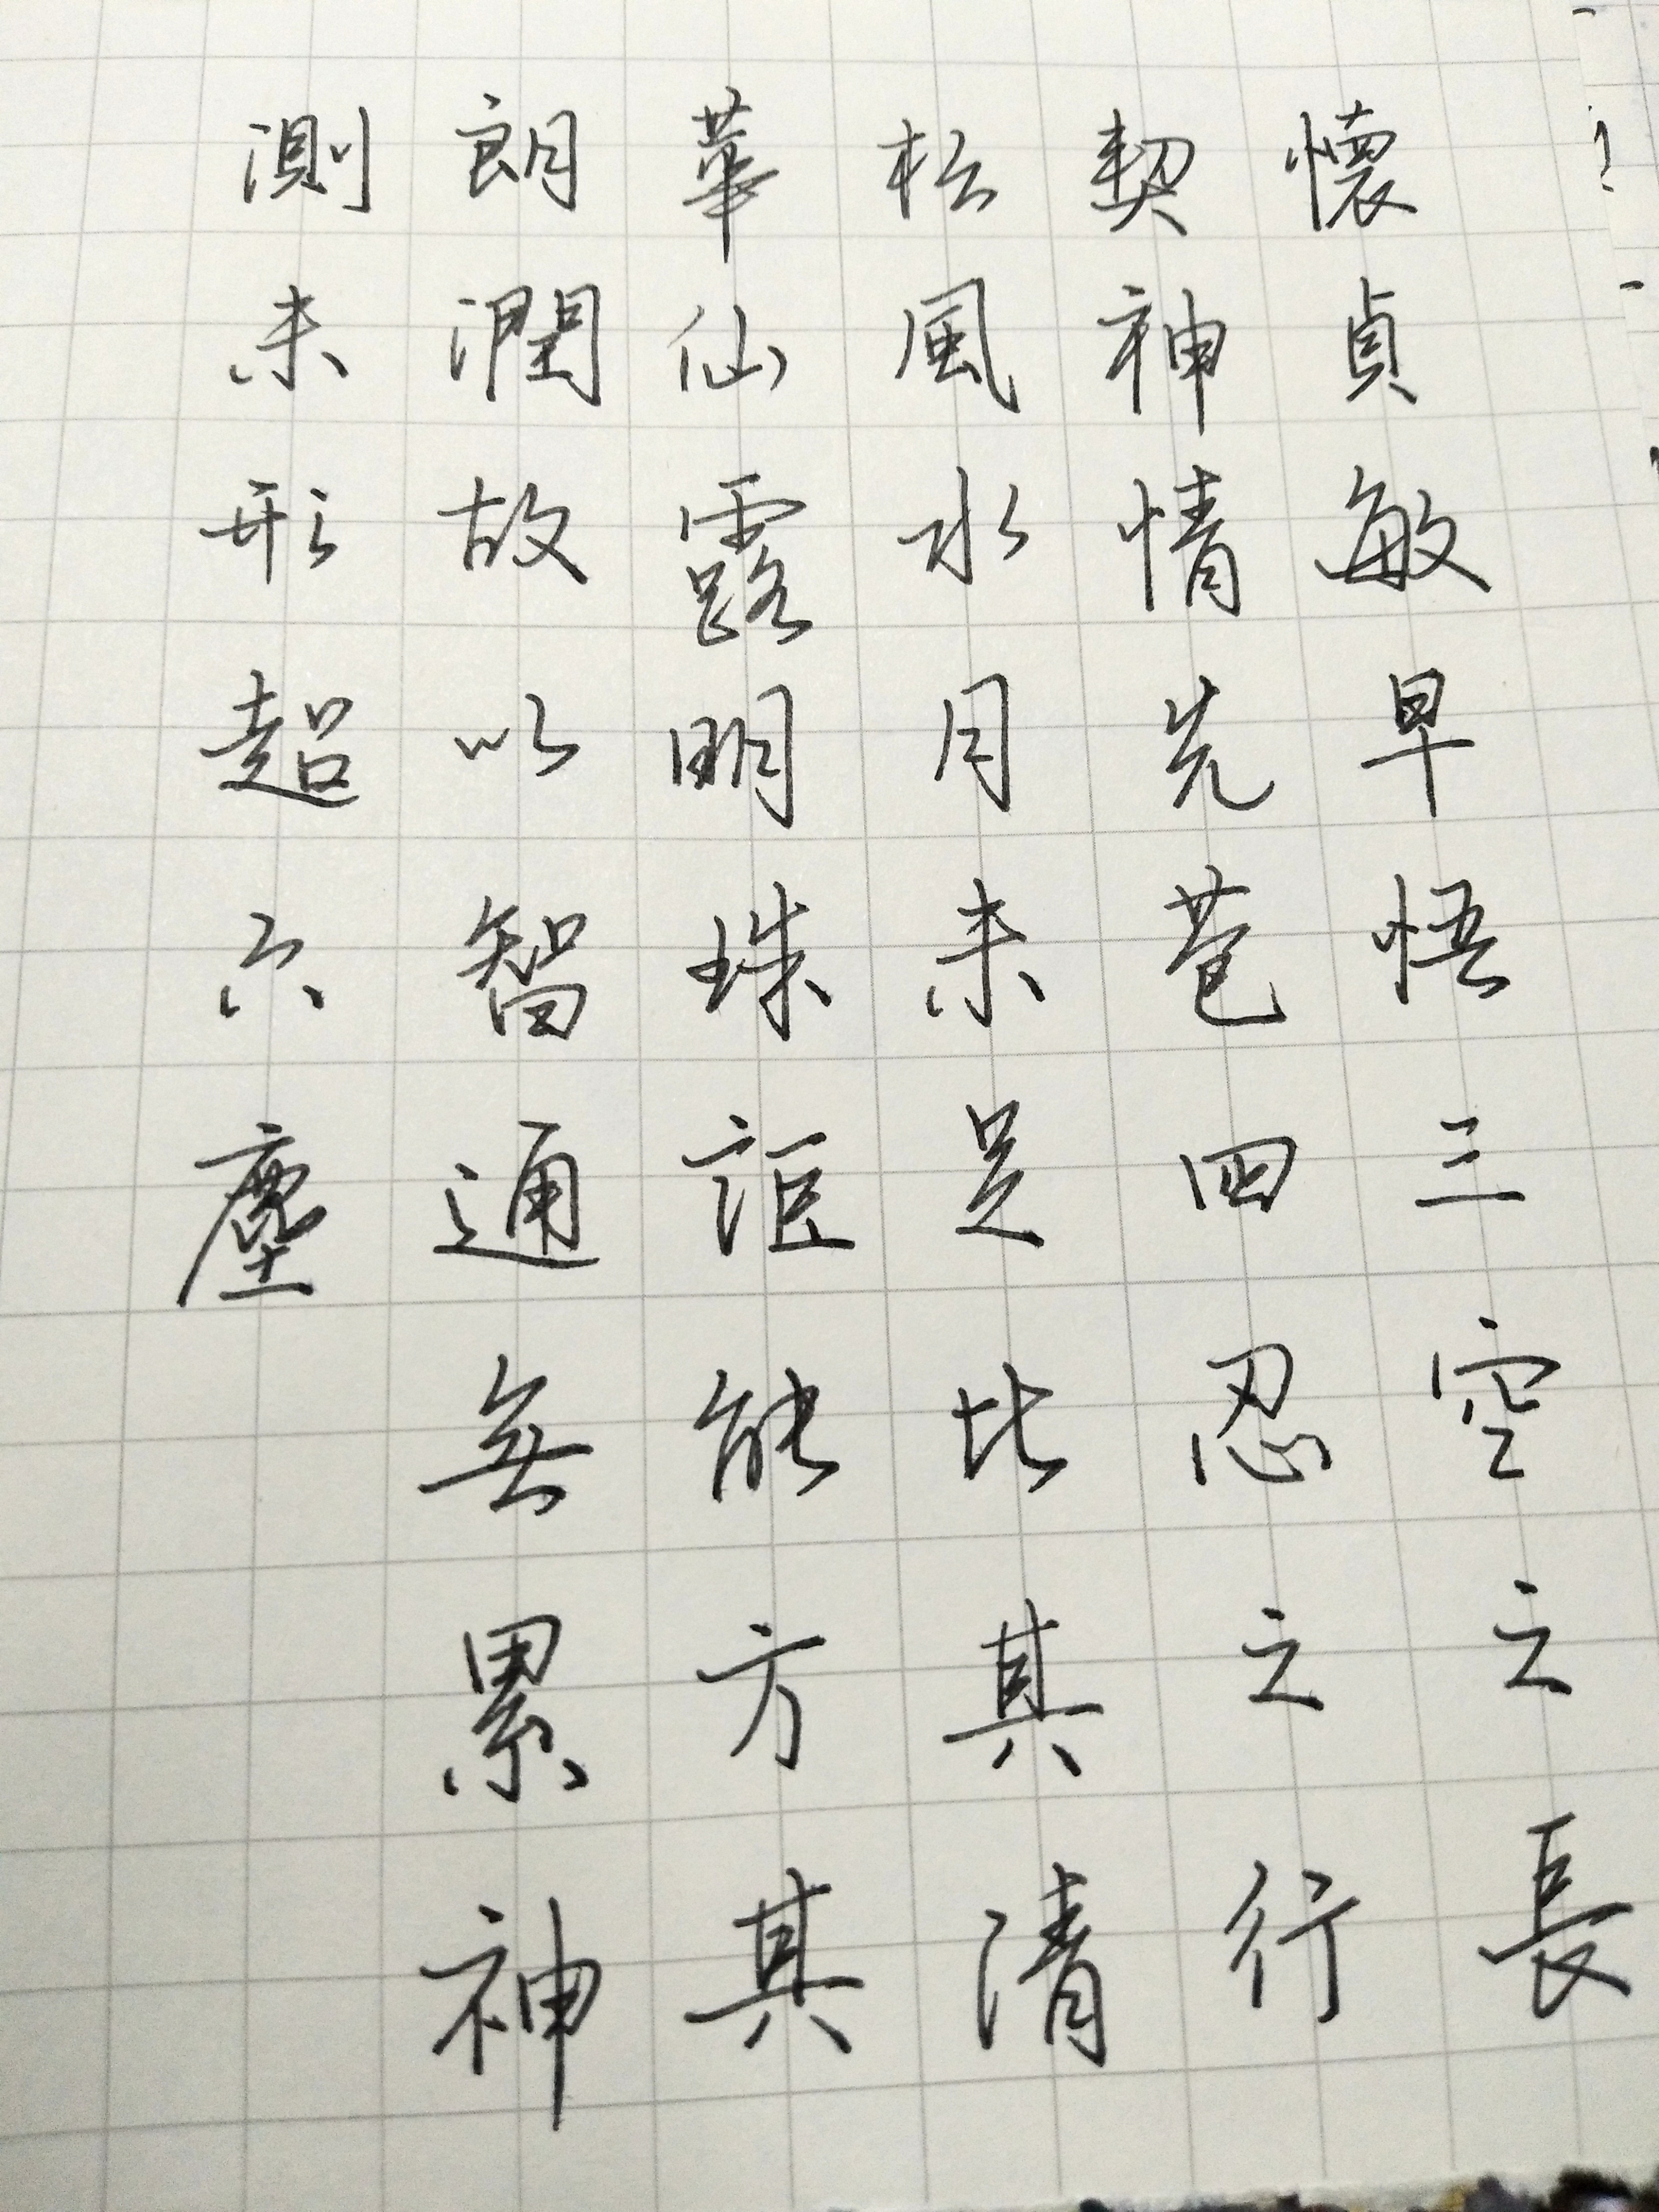 懷貞敏早悟三空之長
契神情先苞四忍之行
松風水月未足比其清
華仙露明珠詎能方其
朗潤故以智通無累神
測未形超六塵